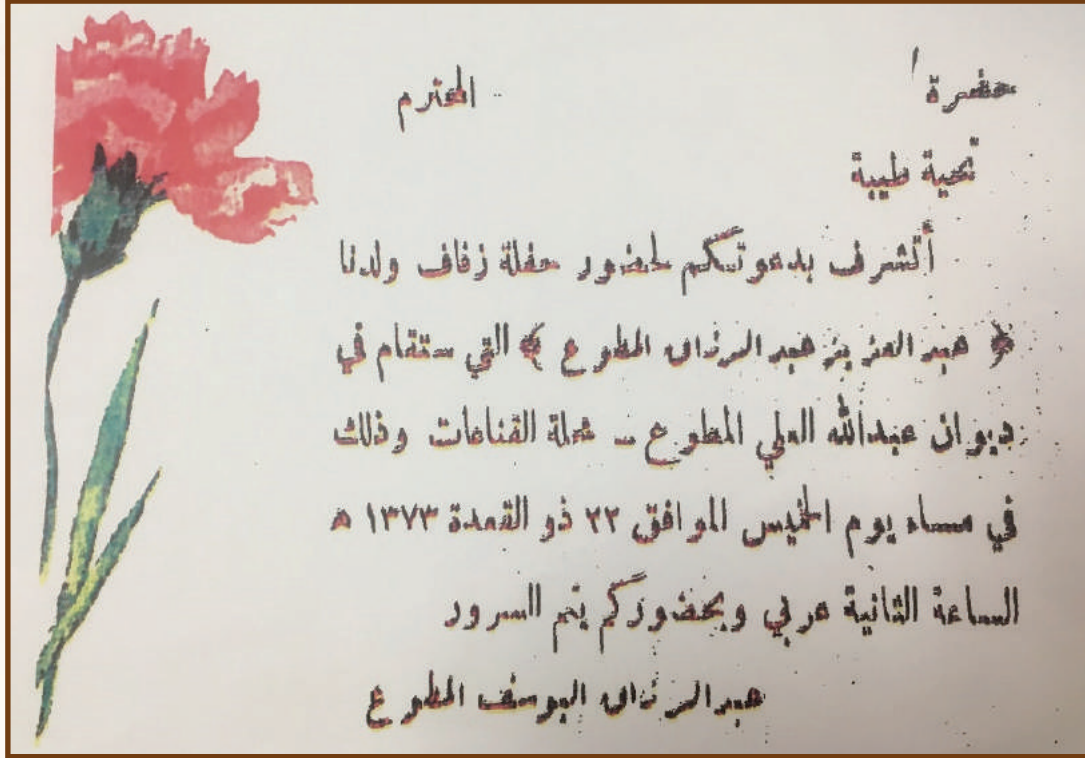 حضرة المحترم
تحية طيبة
أتشرف بدعوتكم لحضور حفلة زفاف ولدنا
﴿ عبد العزيز عبد الرزاق المطوع ﴾ التي ستقام في
ديوان عبدالله العلي المطوع ـ محلة القناعات وذلك
في مساء يوم الخميس الموافق ٢٢ ذو القعدة ١٣٧٣ ه
الساعة الثانية عربي وبحضوركم يتم السرور
عبدالرزاق اليوسف المطوع